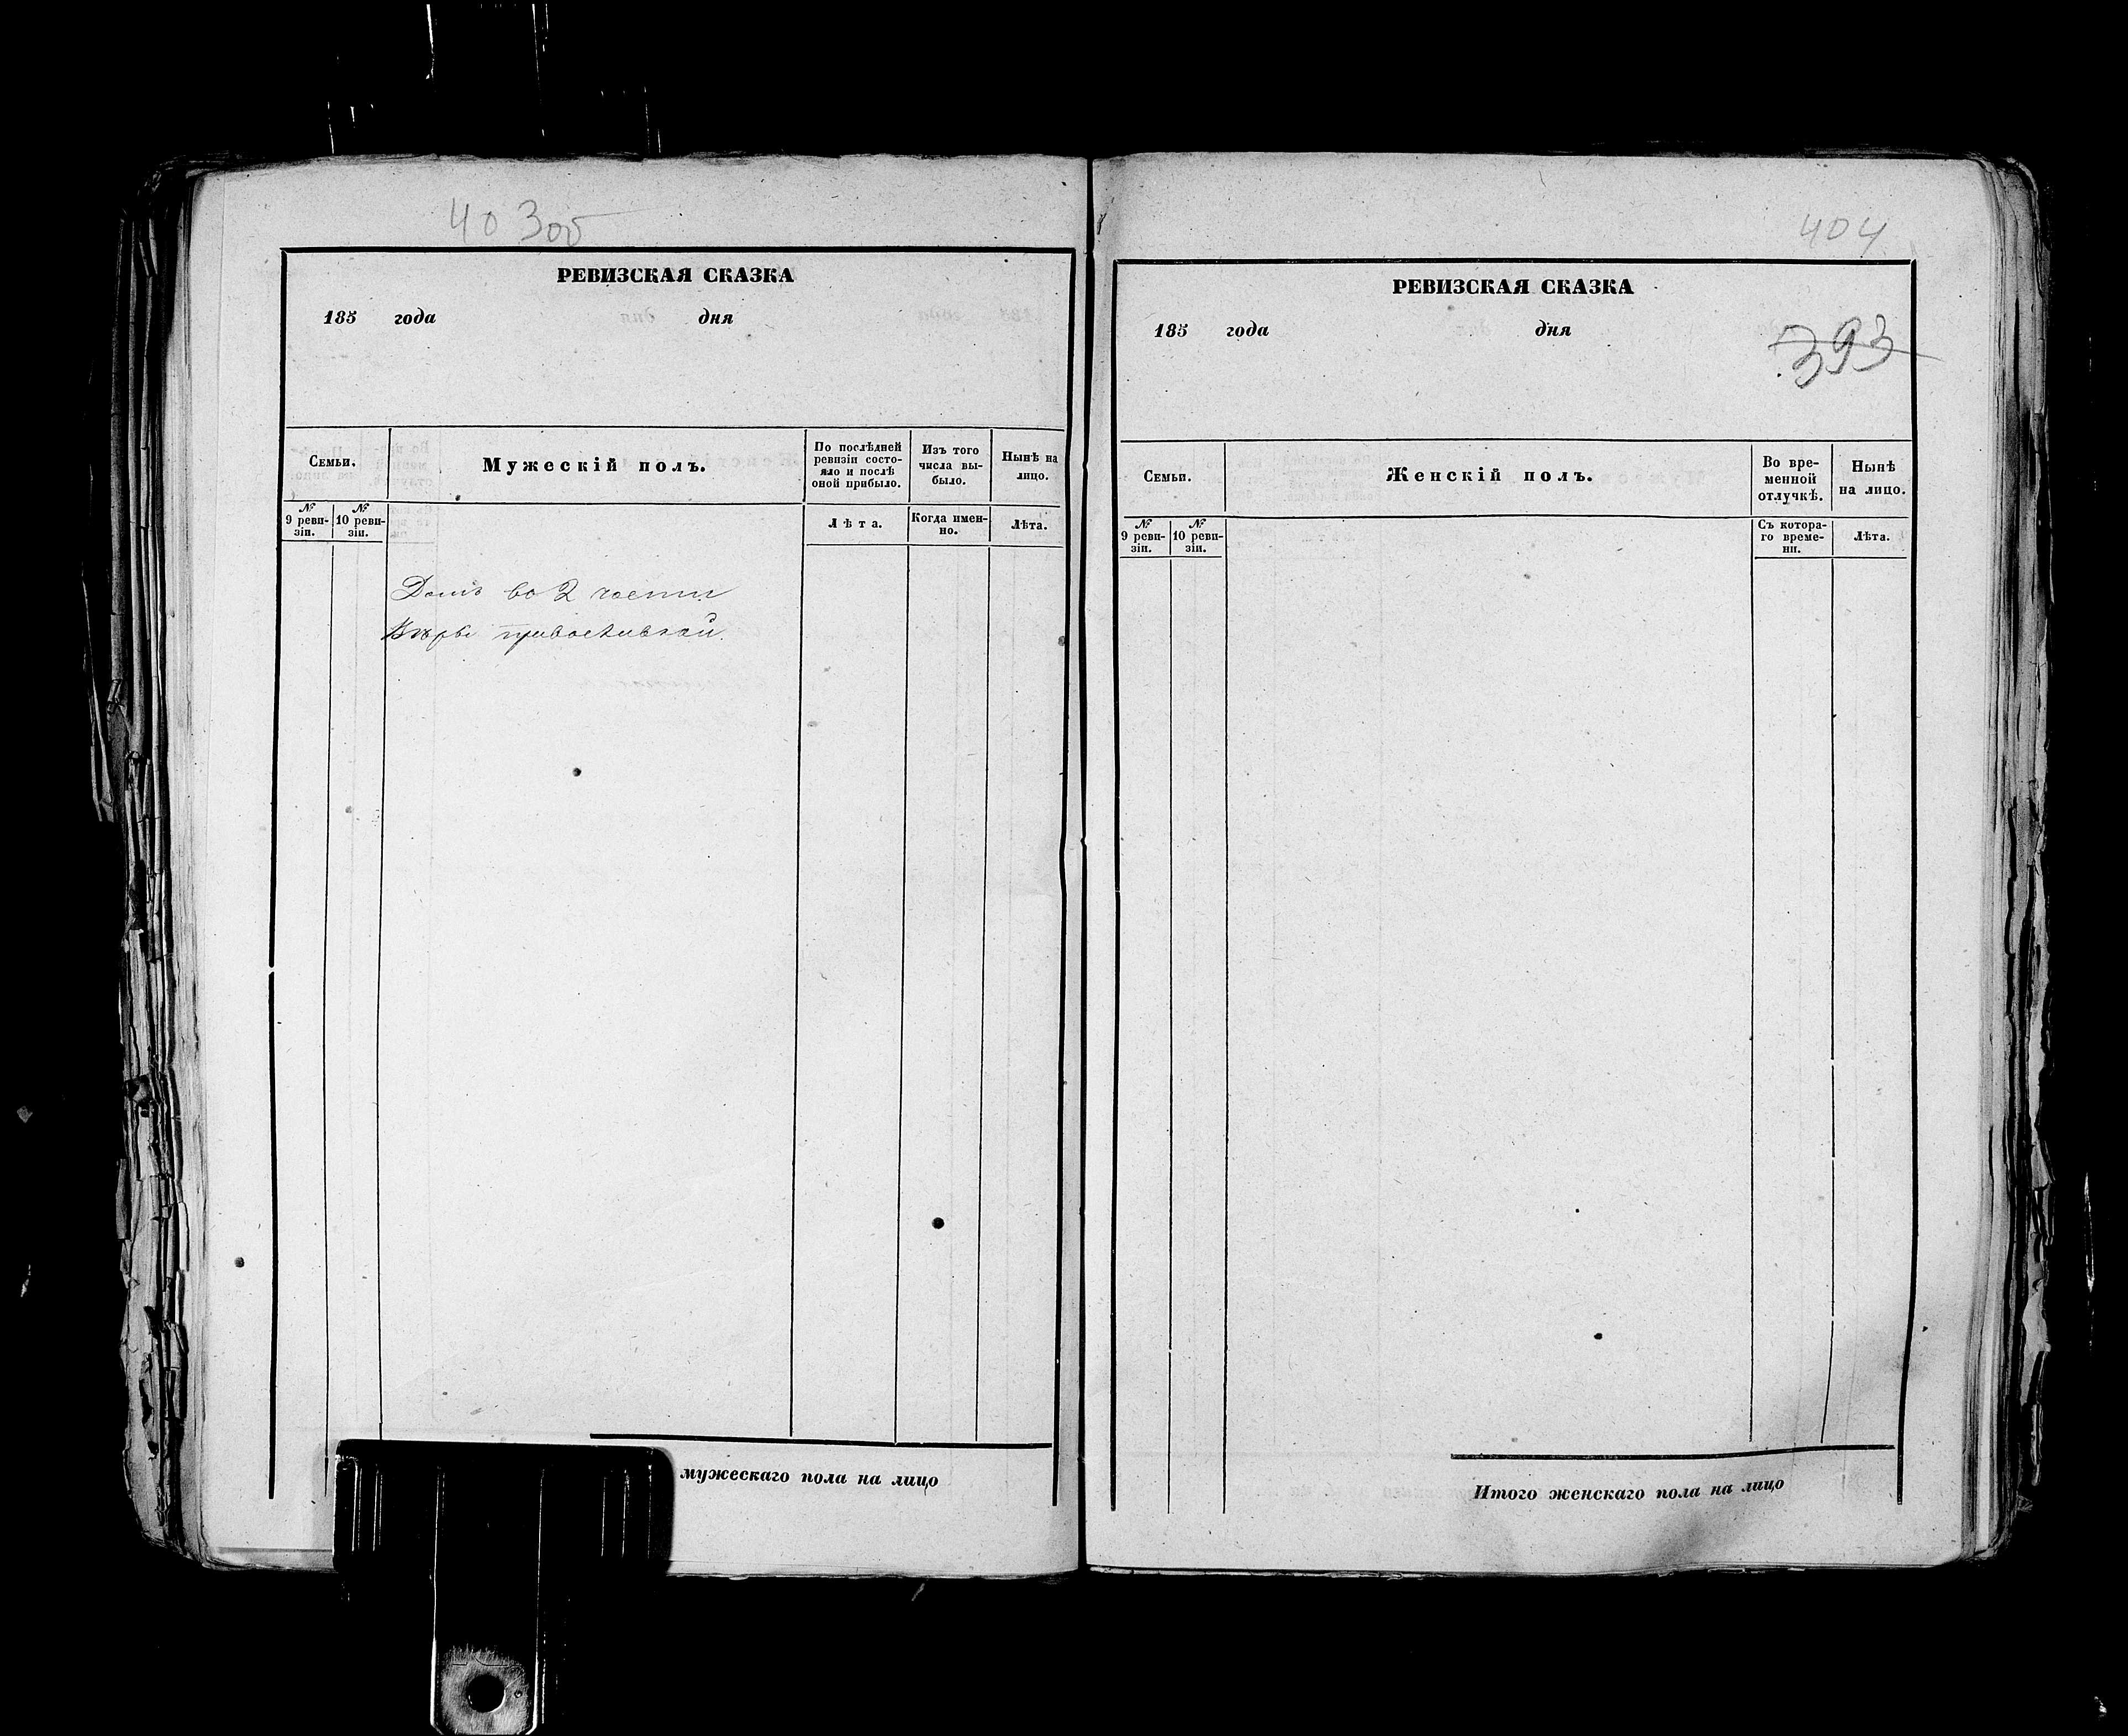 403об
РЕВИЗСКАЯ СКАЗКА
185 года дня
Семьи.
Мужескій полъ.
По послѣдней ревизіи состо-
яло и послѣ
оной прибыло.
Изъ того
числа вы-
было.
Нынѣ на
лицо.
№
9 реви-
зіи.
№
10 реви-
зіи.
Лѣта.
Когда имен-
но.
Лѣта.
Домъ во 2 части
Вѣры православной.
мужескаго пола на лицо
404
РЕВИЗСКАЯ СКАЗКА
185 года дня
393
Семьи.
Женскій полъ.
Во вре-
менной
отлучкѣ.
Нынѣ
на лицо.
№
9 реви-
зіи.
№
10 реви-
зіи.
Съ котора-
го време-
ни.
Лѣта.
Итого женскаго пола на лицо